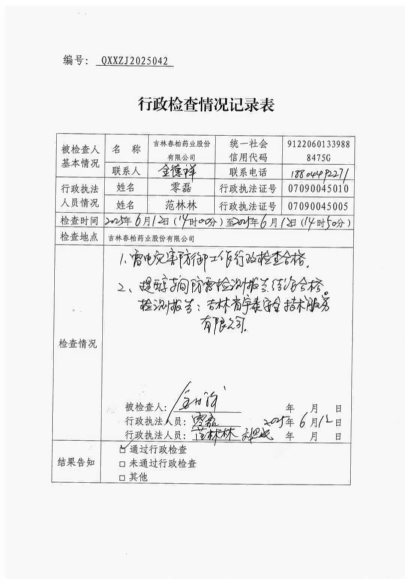 编号: QXXZJ2025042
行政检查情况记录表
被检查人基本情况 名 称 吉林春柏药业股份有限公司 统一社会信用代码 91220601339888475G
联系人 联系电话 18804492271
行政执法人员情况 姓名 零磊 行政执法证号 07090045010
姓名 范林林 行政执法证号 07090045005
检查时间 2025年6月12日(14时00分)至2025年6月12日(14时50分)
检查地点 吉林春柏药业股份有限公司
检查情况
1、雷电灾害防御工作行政检查合格。
2、 车间防雷检测报告结论合格
检测报告:吉林省 安全技术服务
有限公司.
被检查人: 年 月 日
行政执法人员:零磊 2025年6月12日
行政执法人员:范林林 年 月 日
结果告知 ☑ 通过行政检查
□ 未通过行政检查
□ 其他